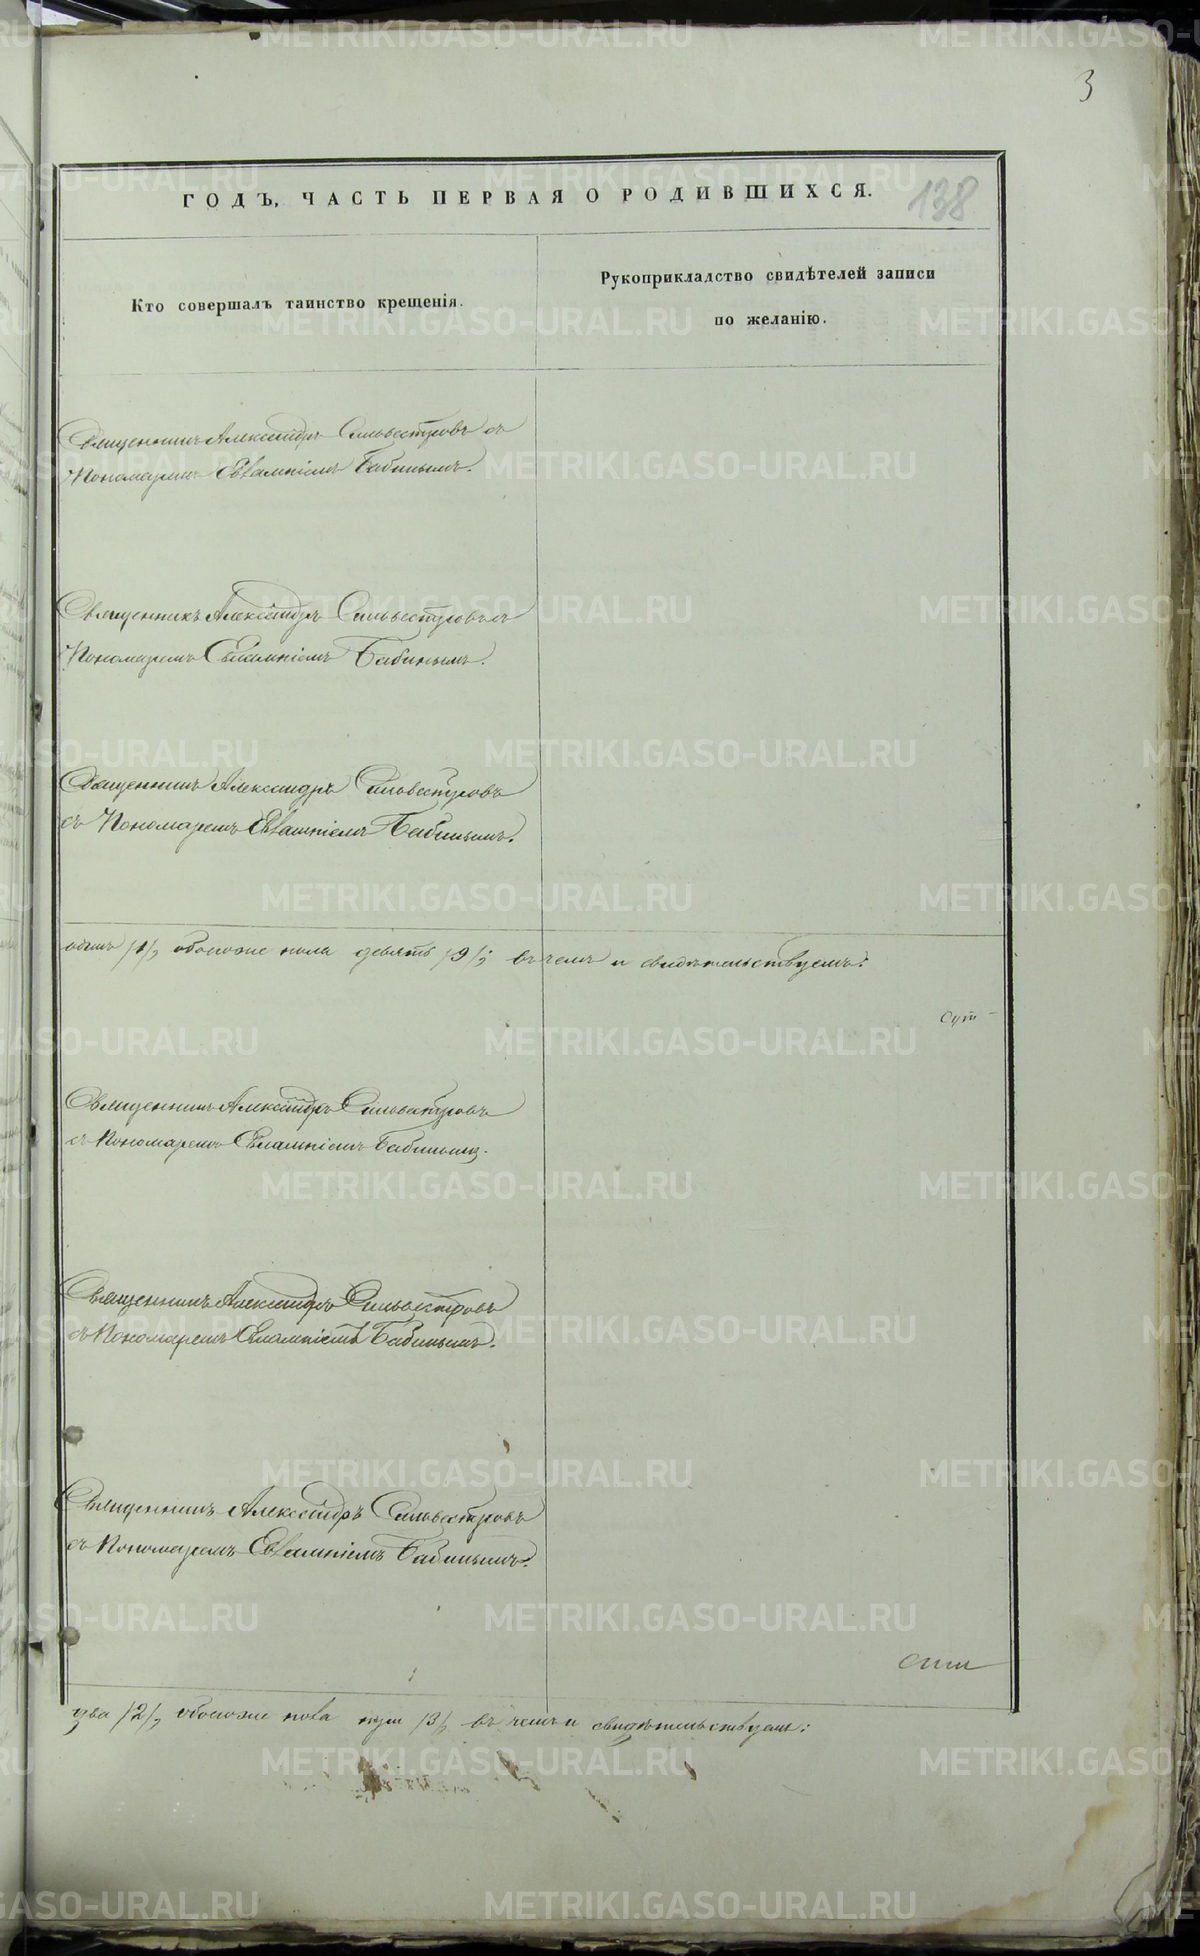 3
138
ГОДЪ, ЧАСТЬ ПЕРВАЯ О РОДИВШИХСЯ.
Кто совершалъ таинство крещенія.
Рукоприкладство свидѣтелей записи
по желанію.
Священникъ Александръ Сильвестровъ съ
Пономаремъ Евлампіемъ Бабинымъ.
Священникъ Александръ Сильвестровъ съ
Пономаремъ Евлампіемъ Бабинымъ.
Священникъ Александръ Сильвестровъ
съ Пономаремъ Евлампіемъ Бабинымъ.
одинъ /1/, обоегоже пола девять /9/; въ чемъ и свидѣтельствуемъ:
Священникъ Александръ Сильвестровъ
съ Пономаремъ Евлампіемъ Бабинымъ.
Священникъ Александръ Сильвестровъ
съ Пономаремъ Евлампіемъ Бабинымъ.
Священникъ Александръ Сильвестровъ
съ Пономаремъ Евлампіемъ Бабинымъ.
два /2/, обоегоже пола три /3/, въ чемъ и свидѣтельствуемъ:
METRIKI.GASO-URAL.RU